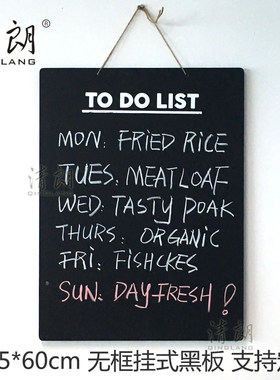 朗®
LANG
TO DO LIST
MON: FRIED RICE
TUES: MEATLOAF
WED: TASTY POAK
THURS: ORGANIC
FRI: FISHCKES
SUN: DAYFRESH!
清朗
QINGLANG
5*60cm 无框挂式黑板 支持